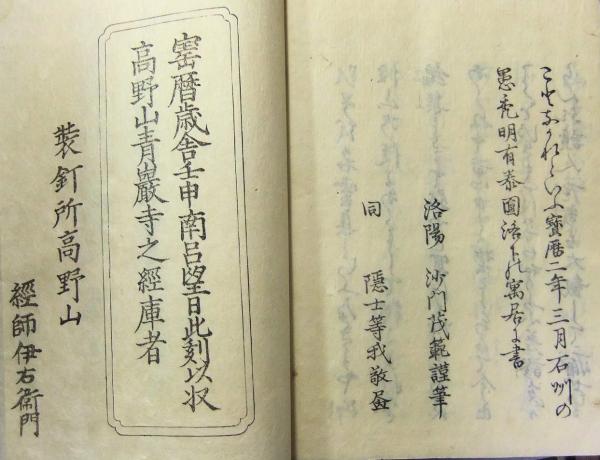 こと𛂂かれといふ寳暦二年三月石州の
愚禿明有泰圓洛下の寓居に書
洛陽　沙門茂範謹筆
同　隠士等我敬畫
宝暦歳舎壬申南呂望日此刻以収
高野山青巖寺之經庫者
裝釘所高野山
經師伊右衛門